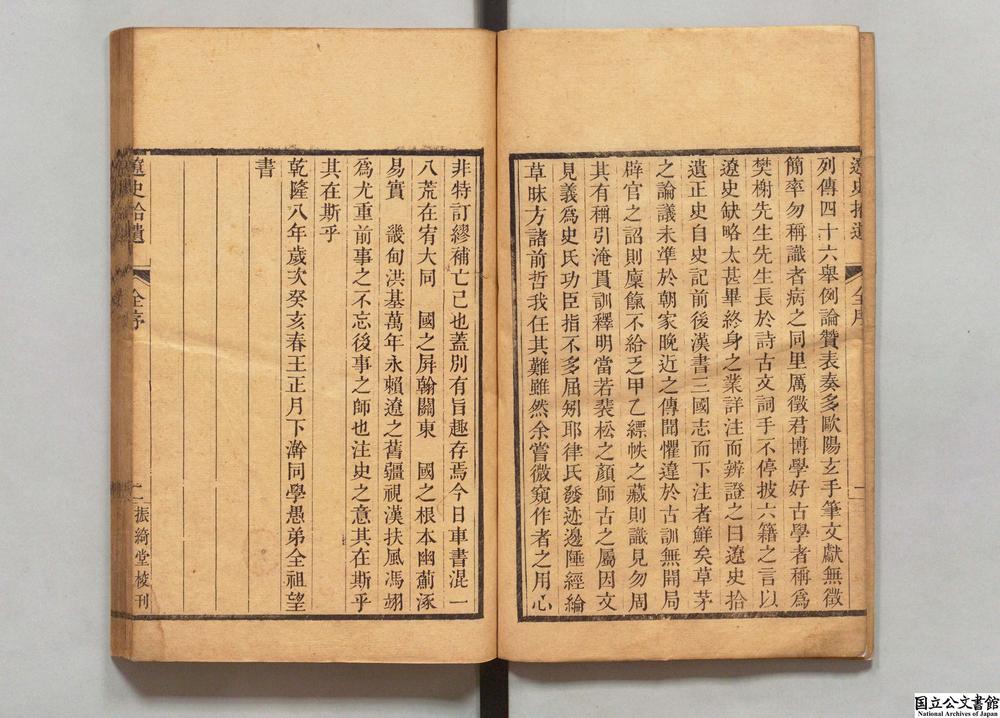 遼史拾遺
全序
一
列傳四十六舉例論贊表奏多歐陽玄手筆文獻無徵
簡率勿稱識者病之同里厲徵君博學好古學者稱爲
樊榭先生先生長於詩古文詞手不停披六籍之言以
遼史缺略太甚畢終身之業詳注而辨證之曰遼史拾
遺正史自史記前後漢書三國志而下注者鮮矣草茅
之論議未準於朝家晚近之傳聞懼違於古訓無開局
辟官之詔則廩餼不給乏甲乙縹帙之藏則識見勿周
其有稱引淹貫訓釋明當若裴松之顏師古之屬因文
見義爲史氏功臣指不多屈矧耶律氏發迹邊陲經綸
草昧方諸前哲我任其難雖然余嘗微窺作者之用心
非特訂繆補亡已也蓋别有旨趣存焉今日車書混一
八荒在宥大同　國之屏翰關東　國之根本幽薊涿
易實　畿甸洪基萬年永賴遼之舊疆視漢扶風馮翊
爲尤重前事之不忘後事之師也注史之意其在斯乎
其在斯乎
乾隆八年歲次癸亥春王正月下澣同學愚弟全祖望
書
遼史拾遺
全序
二
振綺堂校刊
国立公文書館
National Archives of Japan